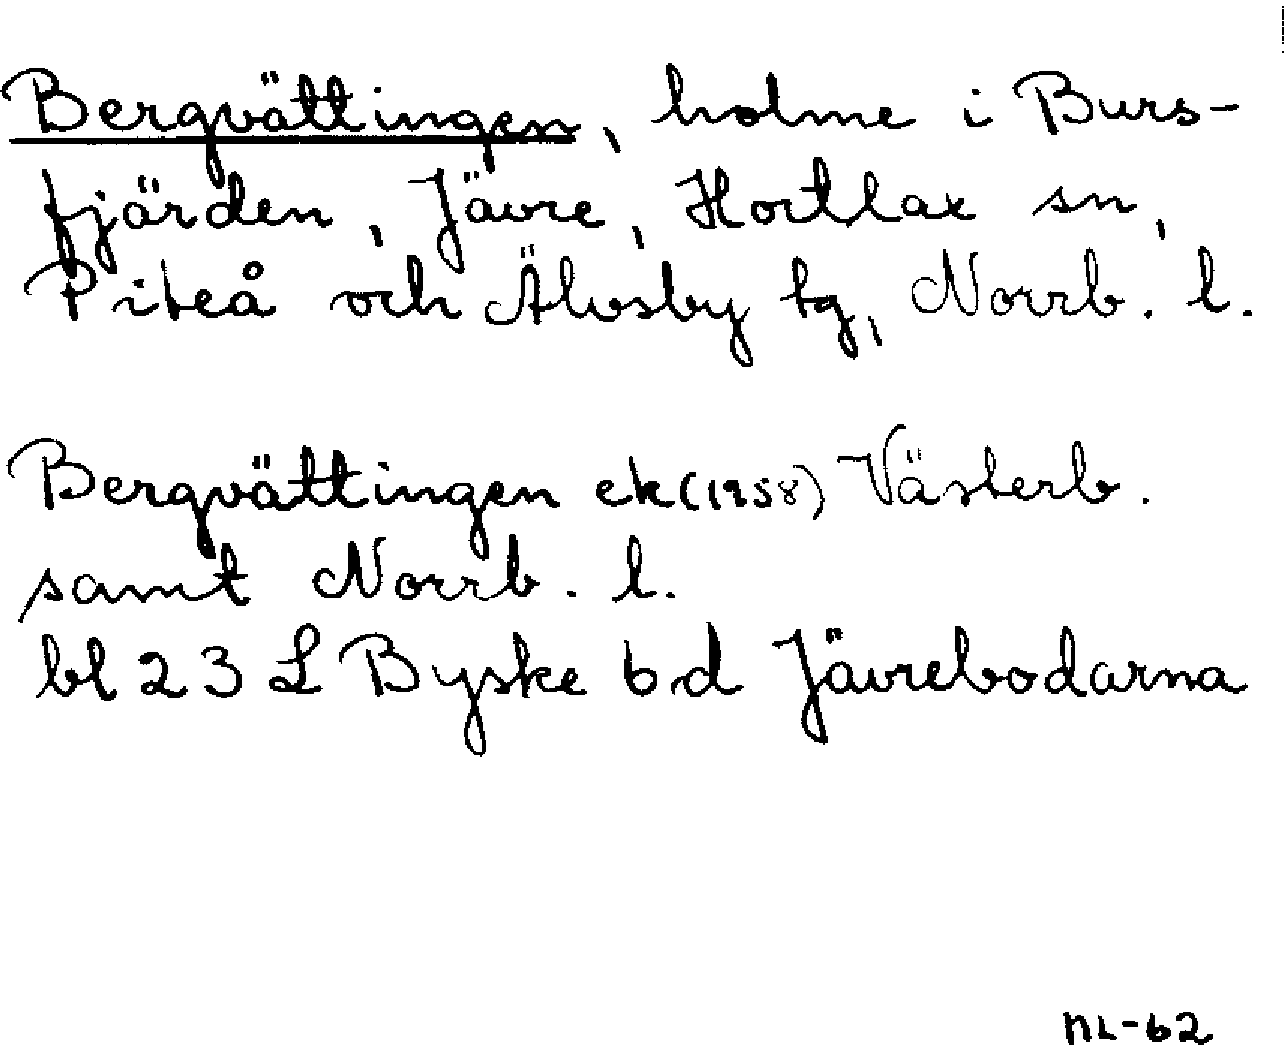 Bergvättingen, holme i Burs-
fjärden, Jävre, Hortlax sn,
Piteå och Älvsby tg, Norrb. l.
Bergvättingen ek (1958) Västerb.
samt Norrb. l.
bl 23 L Byske 6 d Jävrebodarna
NL-62